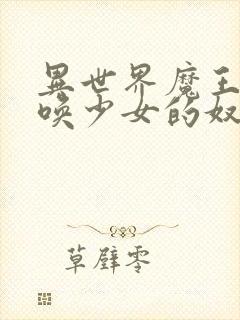 異世界魔王
喚少女的奴
草壁零